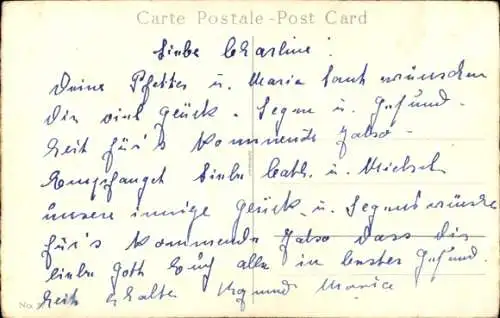 Carte Postale - Post Card
Liebe Charline!
Deine Pfetter u. Maria Tant wünschen
Dir viel Glück - Segen u. Gesund-
heit für's kommende Jahr -
Empfanget Liebe Cath. u. Michel
unsere innige Glück- u. Segenswünsche
für's kommende Jahr dass die
liebe Gott Euch alle in bester Gesund
heit erhalte Maria
No.